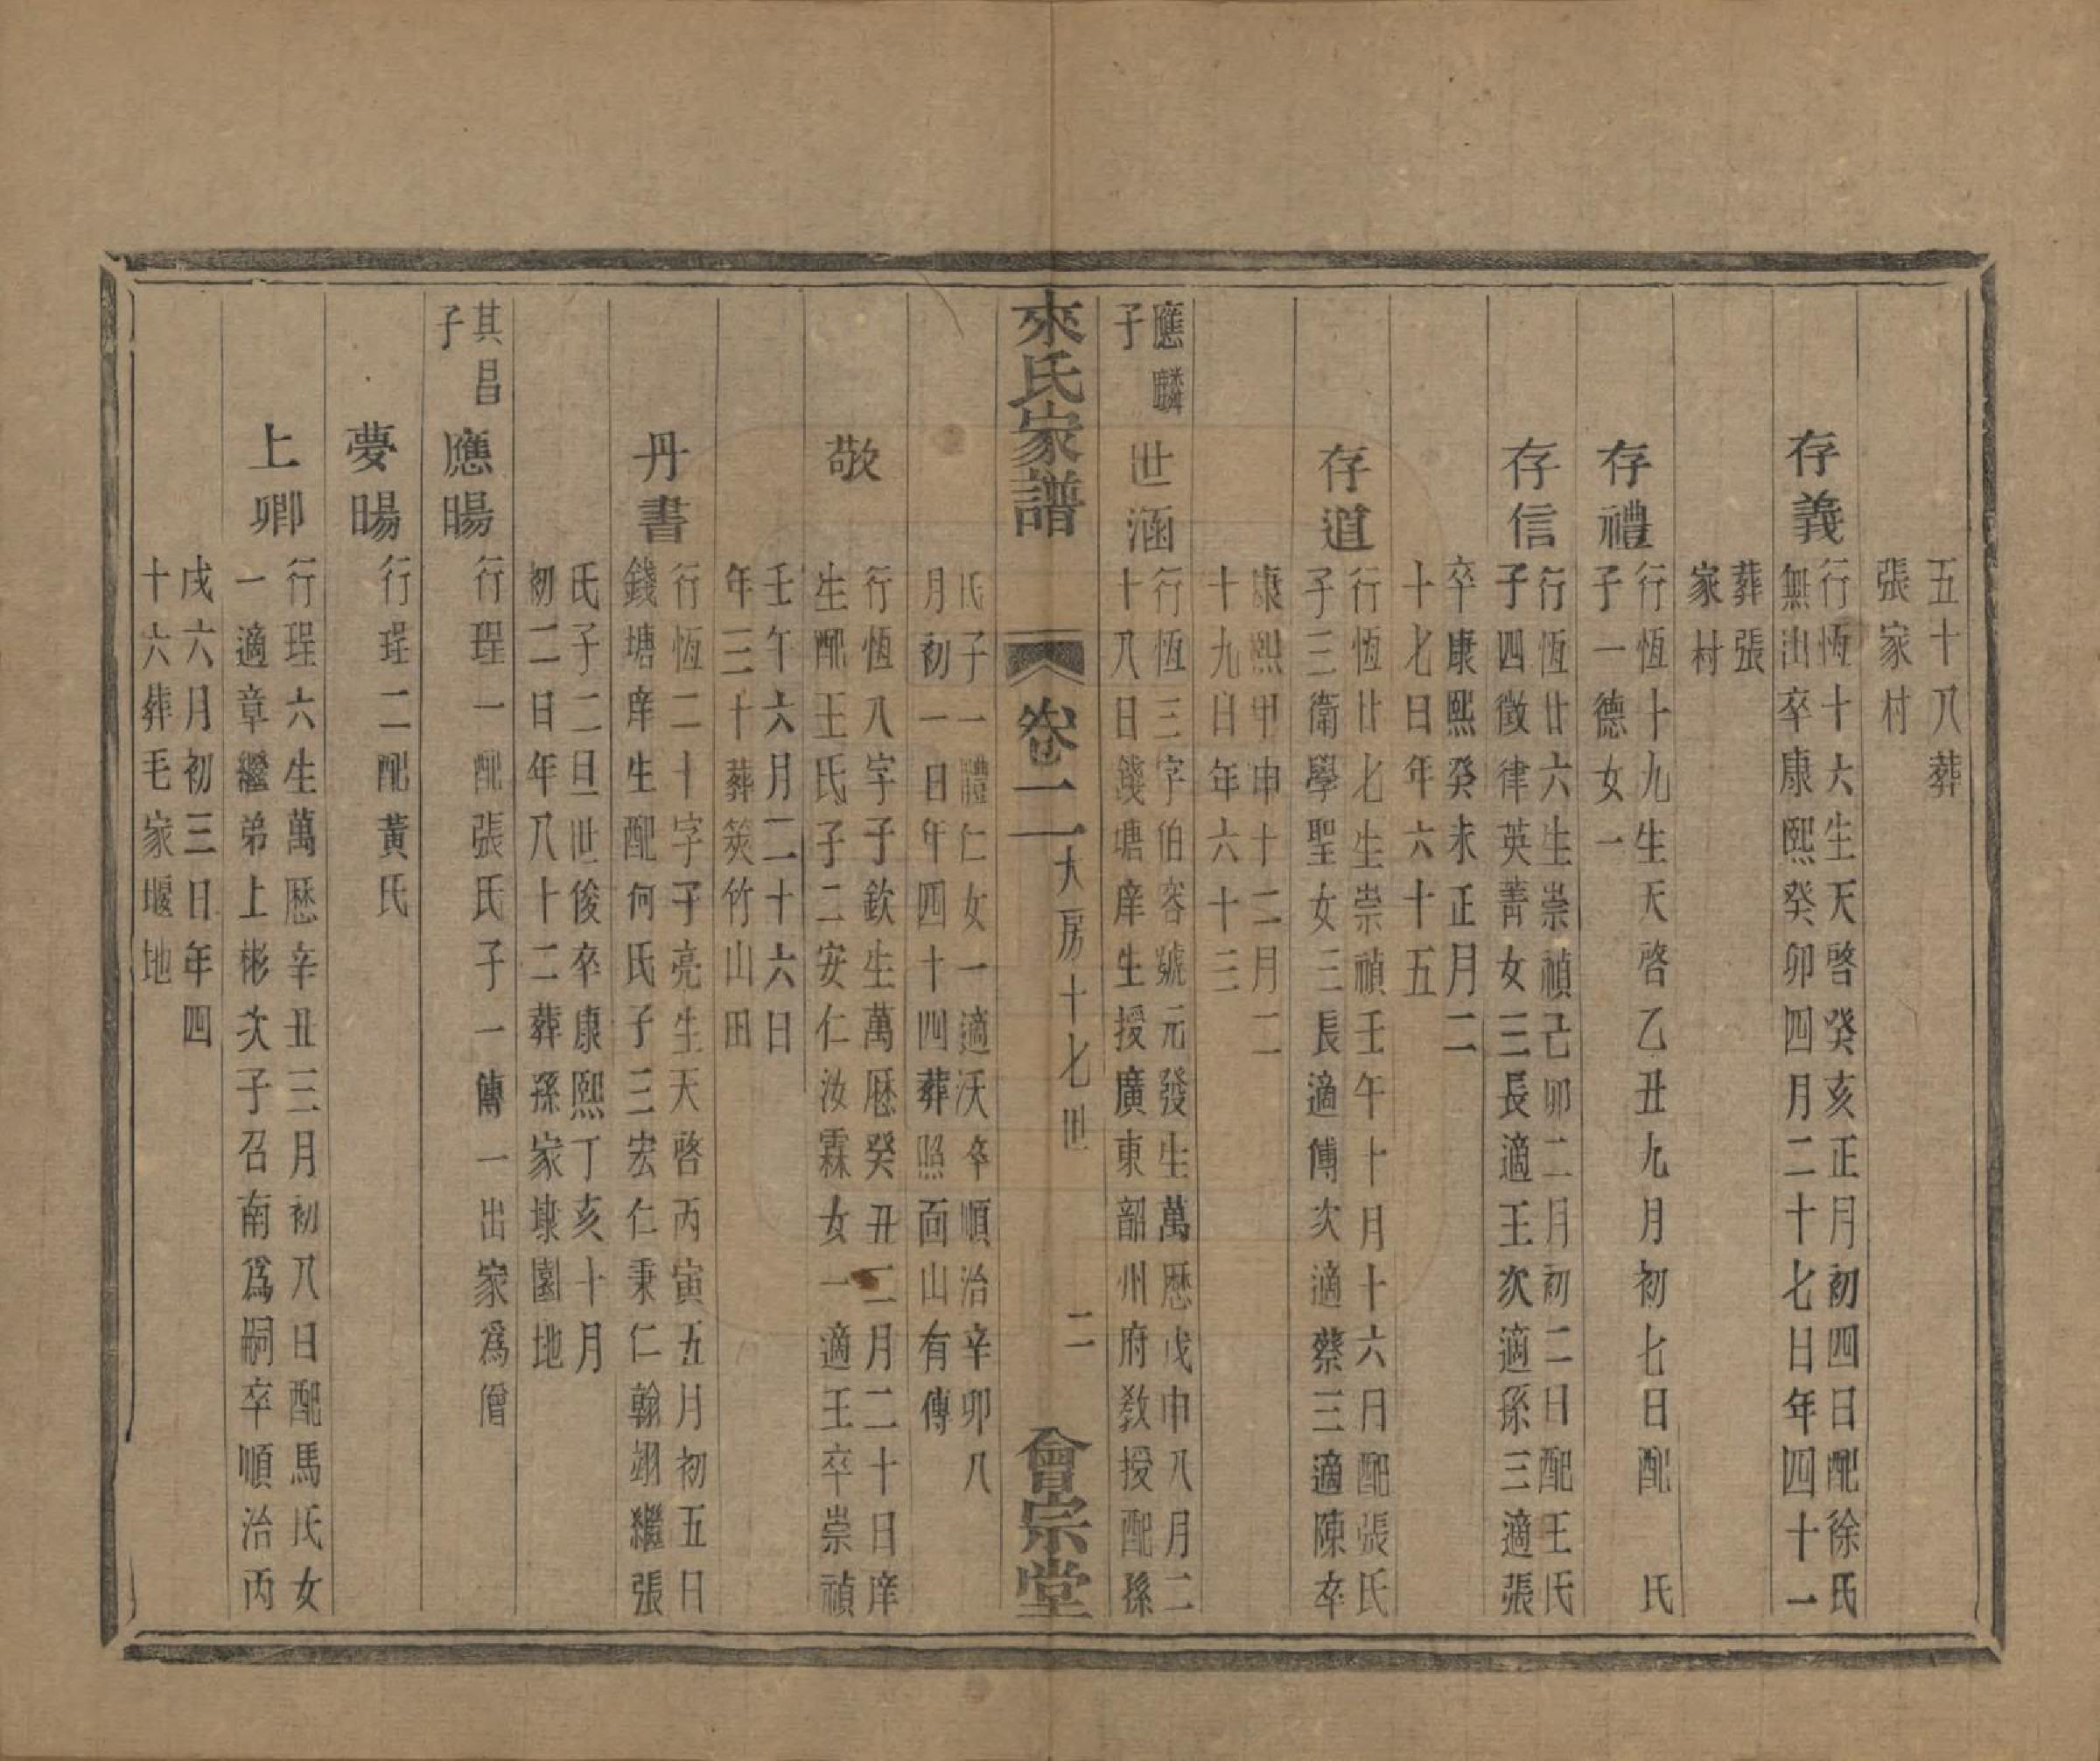 五十八葬
張家村
存義
行恆十六生天啓癸亥正月初四日配徐氏
無出卒康熙癸卯四月二十七日年四十一
葬張
家村
存禮
行恆十九生天啓乙丑九月初七日配　氏
子一德女一
存信
行恆廿六生崇禎己卯二月初二日配王氏
子四徵律英菁女三長適王次適孫三適張
卒康熙癸未正月二
十七日年六十五
存道
行恆廿七生崇禎壬午十月十六日配張氏
子三衛學聖女三長適傅次適蔡三適陳卒
康熙甲申十二月二
十九日年六十三
應麟
子
世涵
行恆三字伯容號元發生萬歷戊申八月二
十八日錢塘庠生授廣東韶州府教授配孫
來氏家譜
卷二
大房十七世
二
會宗堂
氏子一體仁女一適沃卒順治辛卯八
月初一日年四十四葬照面山有傳
敬
行恆八字子欽生萬歷癸丑二月二十日庠
生配王氏子二安仁汝霖女一適王卒崇禎
壬午六月二十六日
年三十葬筴竹山田
丹書
行恆二十字子亮生天啓丙寅五月初五日
錢塘庠生配何氏子三宏仁秉仁翰翊繼張
氏子二旦世俊卒康熙丁亥十月
初二日年八十二葬孫家埭園地
其昌
子
應暘
行珵一配張氏子一傳一出家爲僧
夢暘
行珵二配黃氏
上卿
行珵六生萬歷辛丑三月初八日配馬氏女
一適章繼弟上彬次子召南爲嗣卒順治丙
戌六月初三日年四
十六葬毛家堰地